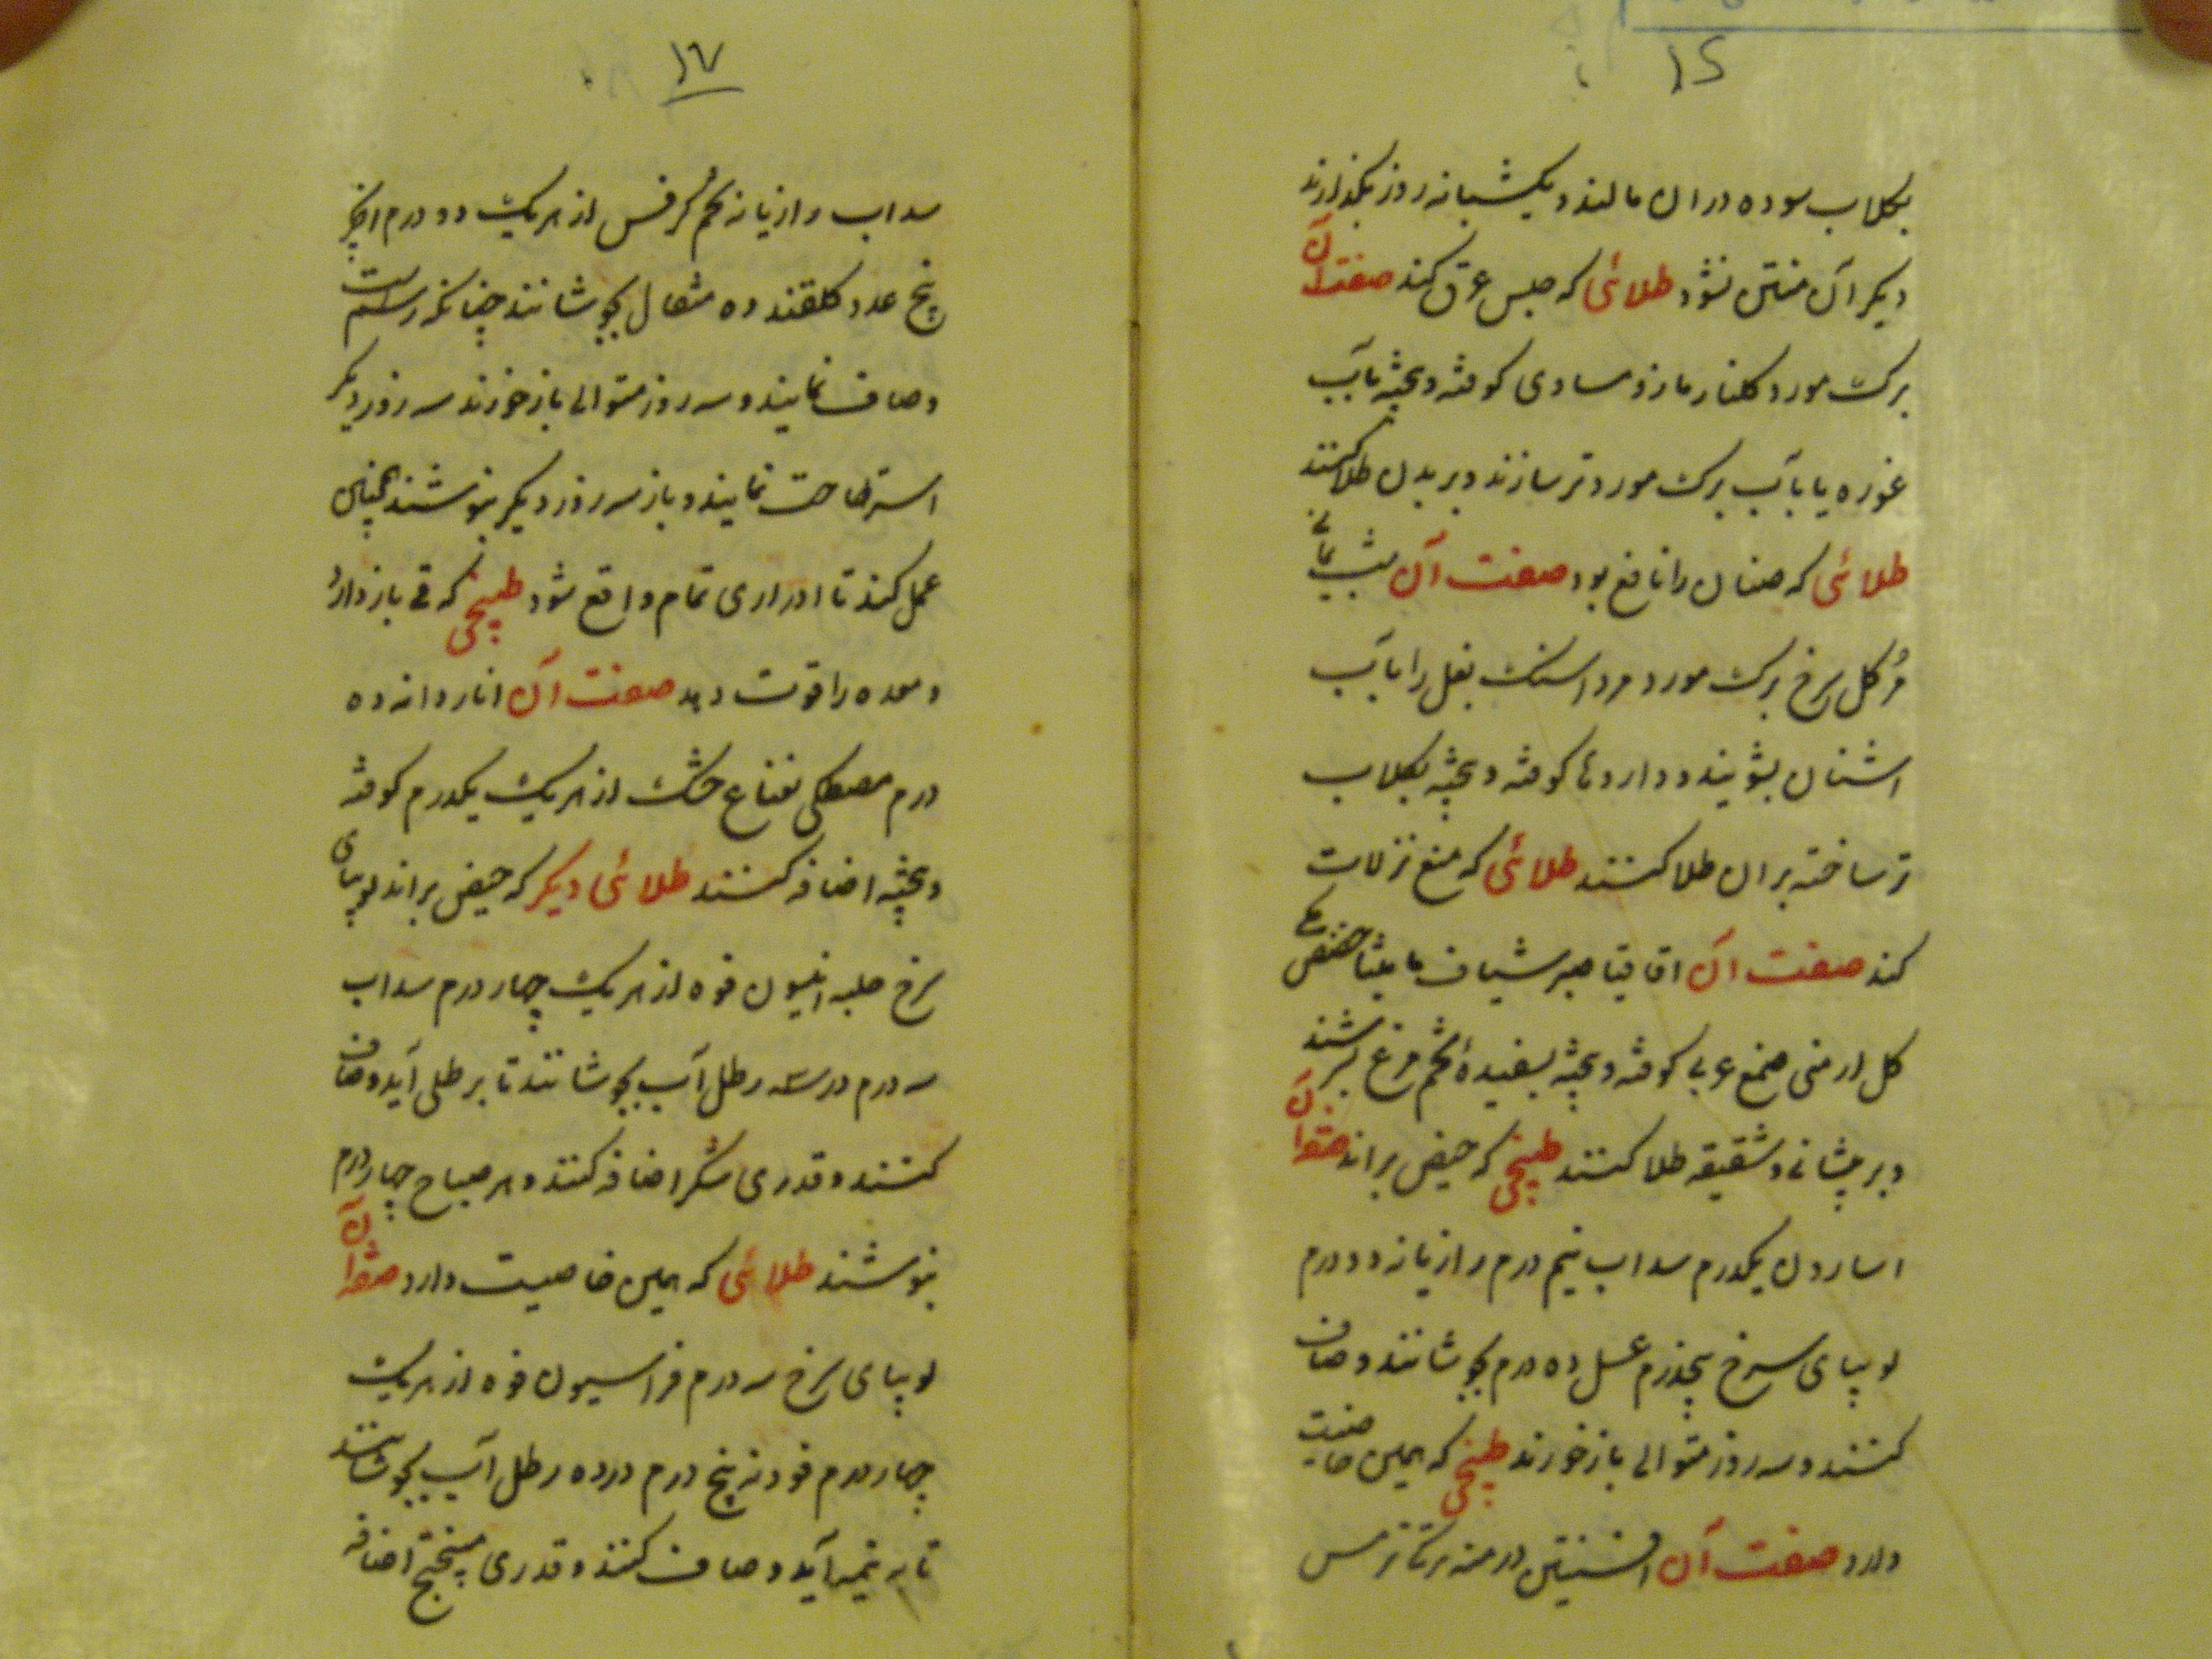 ۱۶
بکلاب سوده دران مالند و یکشبانه روز بکذارند
دیکر آن منتن نشود طلائی که حبس عرق کند صفت آن
برک مورد کلنار مازو مساوی کوفته و بیخته بآب
غوره یا بآب برک مورد تر سازند و بر بدن طلا کنند
طلائی که صنان را نافع بود صفت آن شب یمانی
مر کل سرخ برک مورد مرداسنک بغل را بآب
اشنان بشویند و داروها کوفته و بیخته بکلاب
تر ساخته بران طلا کنند طلائی که منع نزلات
کند صفت آن اقاقیا صبر شیاف مامیثا حضض مکی
کل ارمنی صمغ عربی کوفته و بیخته بسفیدۀ تخم مرغ بسرشند
و بر پیشانی و شقیقه طلا کنند طبیخی که حیض براند صفت آن
اسارون یکدرم سداب نیم درم رازیانه دو درم
لوبیای سرخ پنجدرم عسل ده درم بجوشانند و صاف
کنند و سه روز متوالی باز خورند طبیخی که همین خاصیت
دارد صفت آن افسنتین درمنه ترکی ترمس
۱۷
سداب رازیانه تخم کرفس از هر یک دو درم انجیر
پنج عدد کلقند ده مثقال بجوشانند چنانکه رسم است
و صاف نمایند و سه روز متوالی باز خورند سه روز دیکر
استراحت نمایند و باز سه روز دیکر بنوشند همچنین
عمل کنند تا ادراری تمام واقع شود طبیخی که قی باز دارد
و معده را قوت دهد صفت آن انار دانه ده
درم مصطکی نعناع خشک از هر یک یکدرم کوفته
و بیخته اضافه کنند طلائی دیکر که حیض براند لوبیای
سرخ حلبه انیسون فوه از هر یک چهار درم سداب
سه درم در سه رطل آب بجوشانند تا برطلی آید و صاف
کنند و قدری شکر اضافه کنند و هر صباح چهار درم
بنوشند طلائی که همین خاصیت دارد صفت آن
لوبیای سرخ سه درم فراسیون فوه از هر یک
چهار درم فودنه پنج درم در ده رطل آب بجوشانند
تا به نیمه آید و صاف کنند و قدری میبختج اضافه